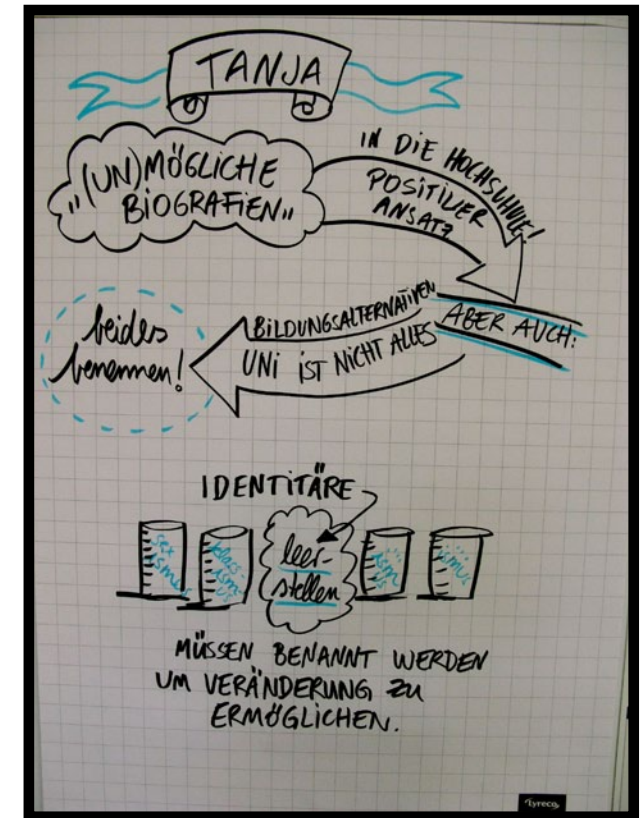 TANJA
"(UN)MÖGLICHE
BIOGRAFIEN"
IN DIE HOCHSCHULE!
POSITIVER
ANSATZ
ABER AUCH:
BILDUNGSALTERNATIVEN
UNI IST NICHT ALLES
beides
benennen!
IDENTITÄRE
sex
ismus
klass-
ism-
us
leer-
stellen
...
ism
us
...
ismus
MÜSSEN BENANNT WERDEN
UM VERÄNDERUNG ZU
ERMÖGLICHEN.